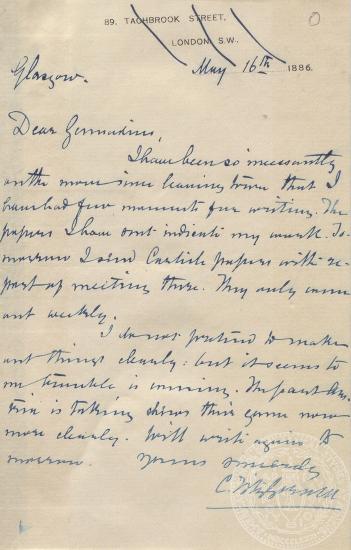 89. TACHBROOK STREET,
LONDON. S.W.
Glasgow. May 16th 1886.
Dear Gennadius,
I have been so incessantly
on the move since leaving town that I
have had few moments for writing. The
papers I have sent indicate my work. To-
morrow I send Carlisle papers with re-
port of meeting there. They only come
out weekly.
I do not pretend to make
out things clearly: but it seems to
me trouble is coming. The part
is taking shows this game now
more clearly. Will write again to
morrow. Yours sincerely
C.